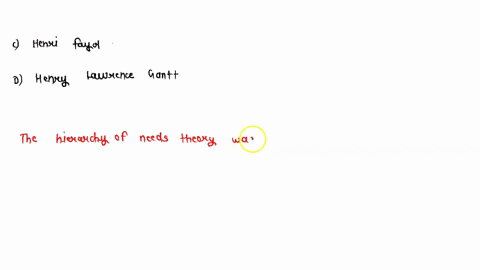 c) Henri fayol
D) Henry Lawrence Gantt
The hierarchy of needs theory was